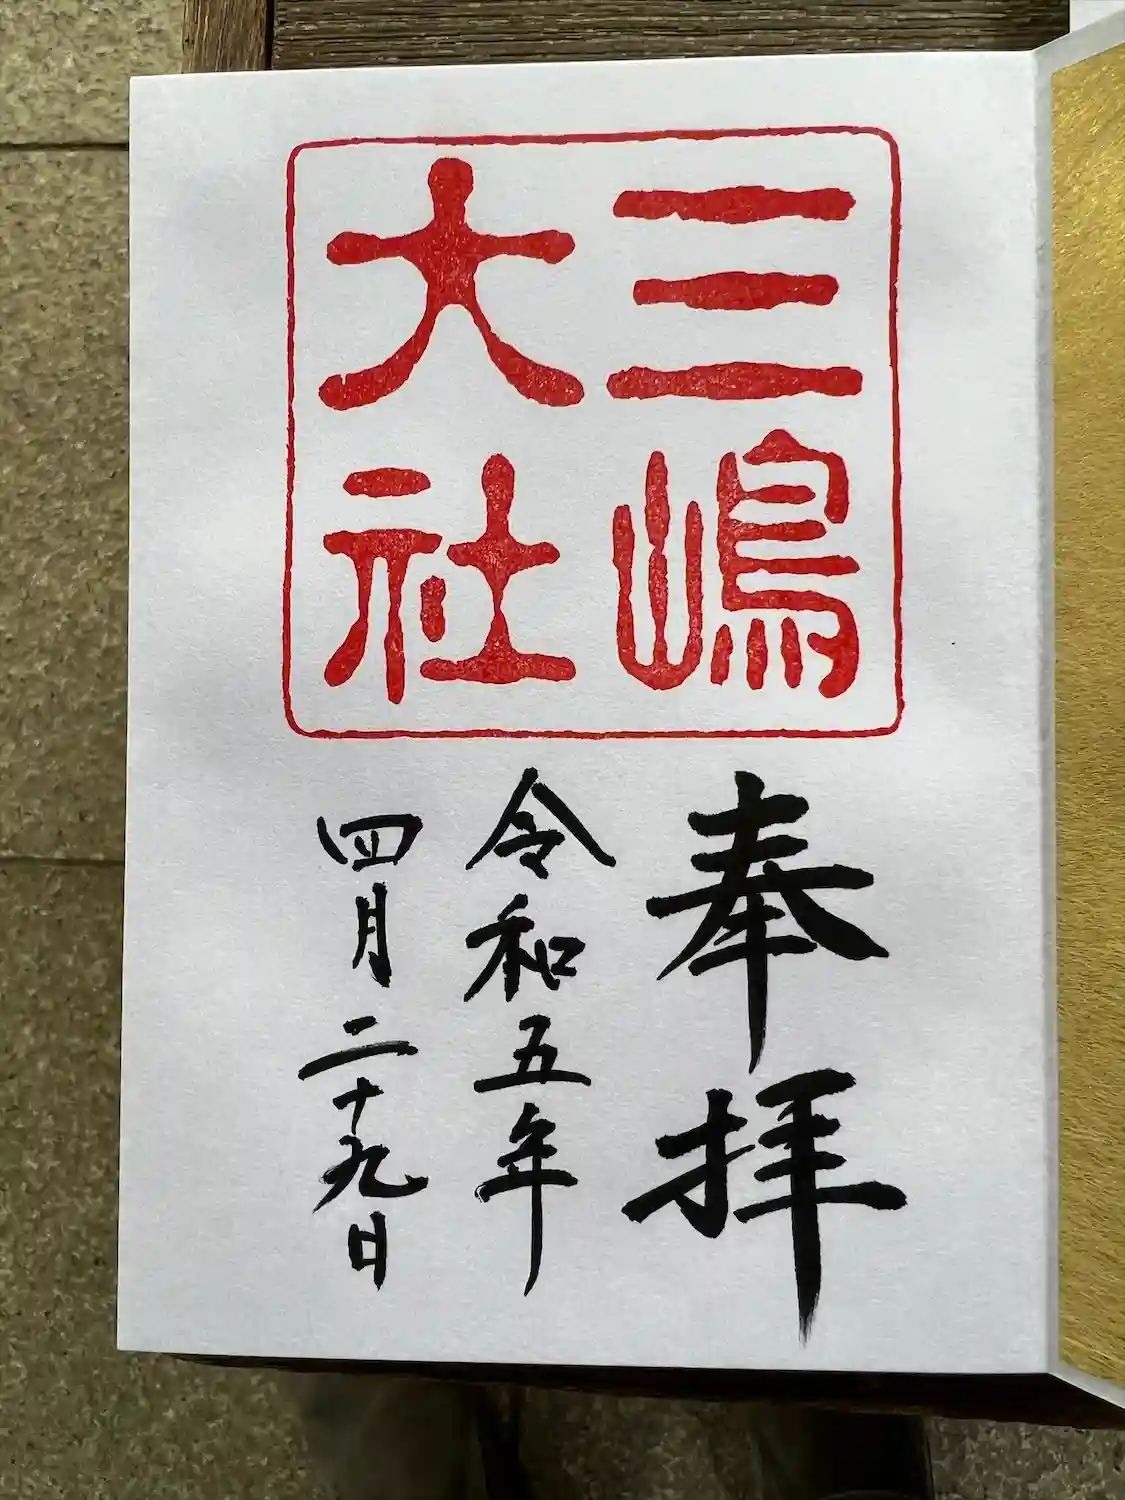 三嶋
大社
奉拝
令和五年
四月二十九日